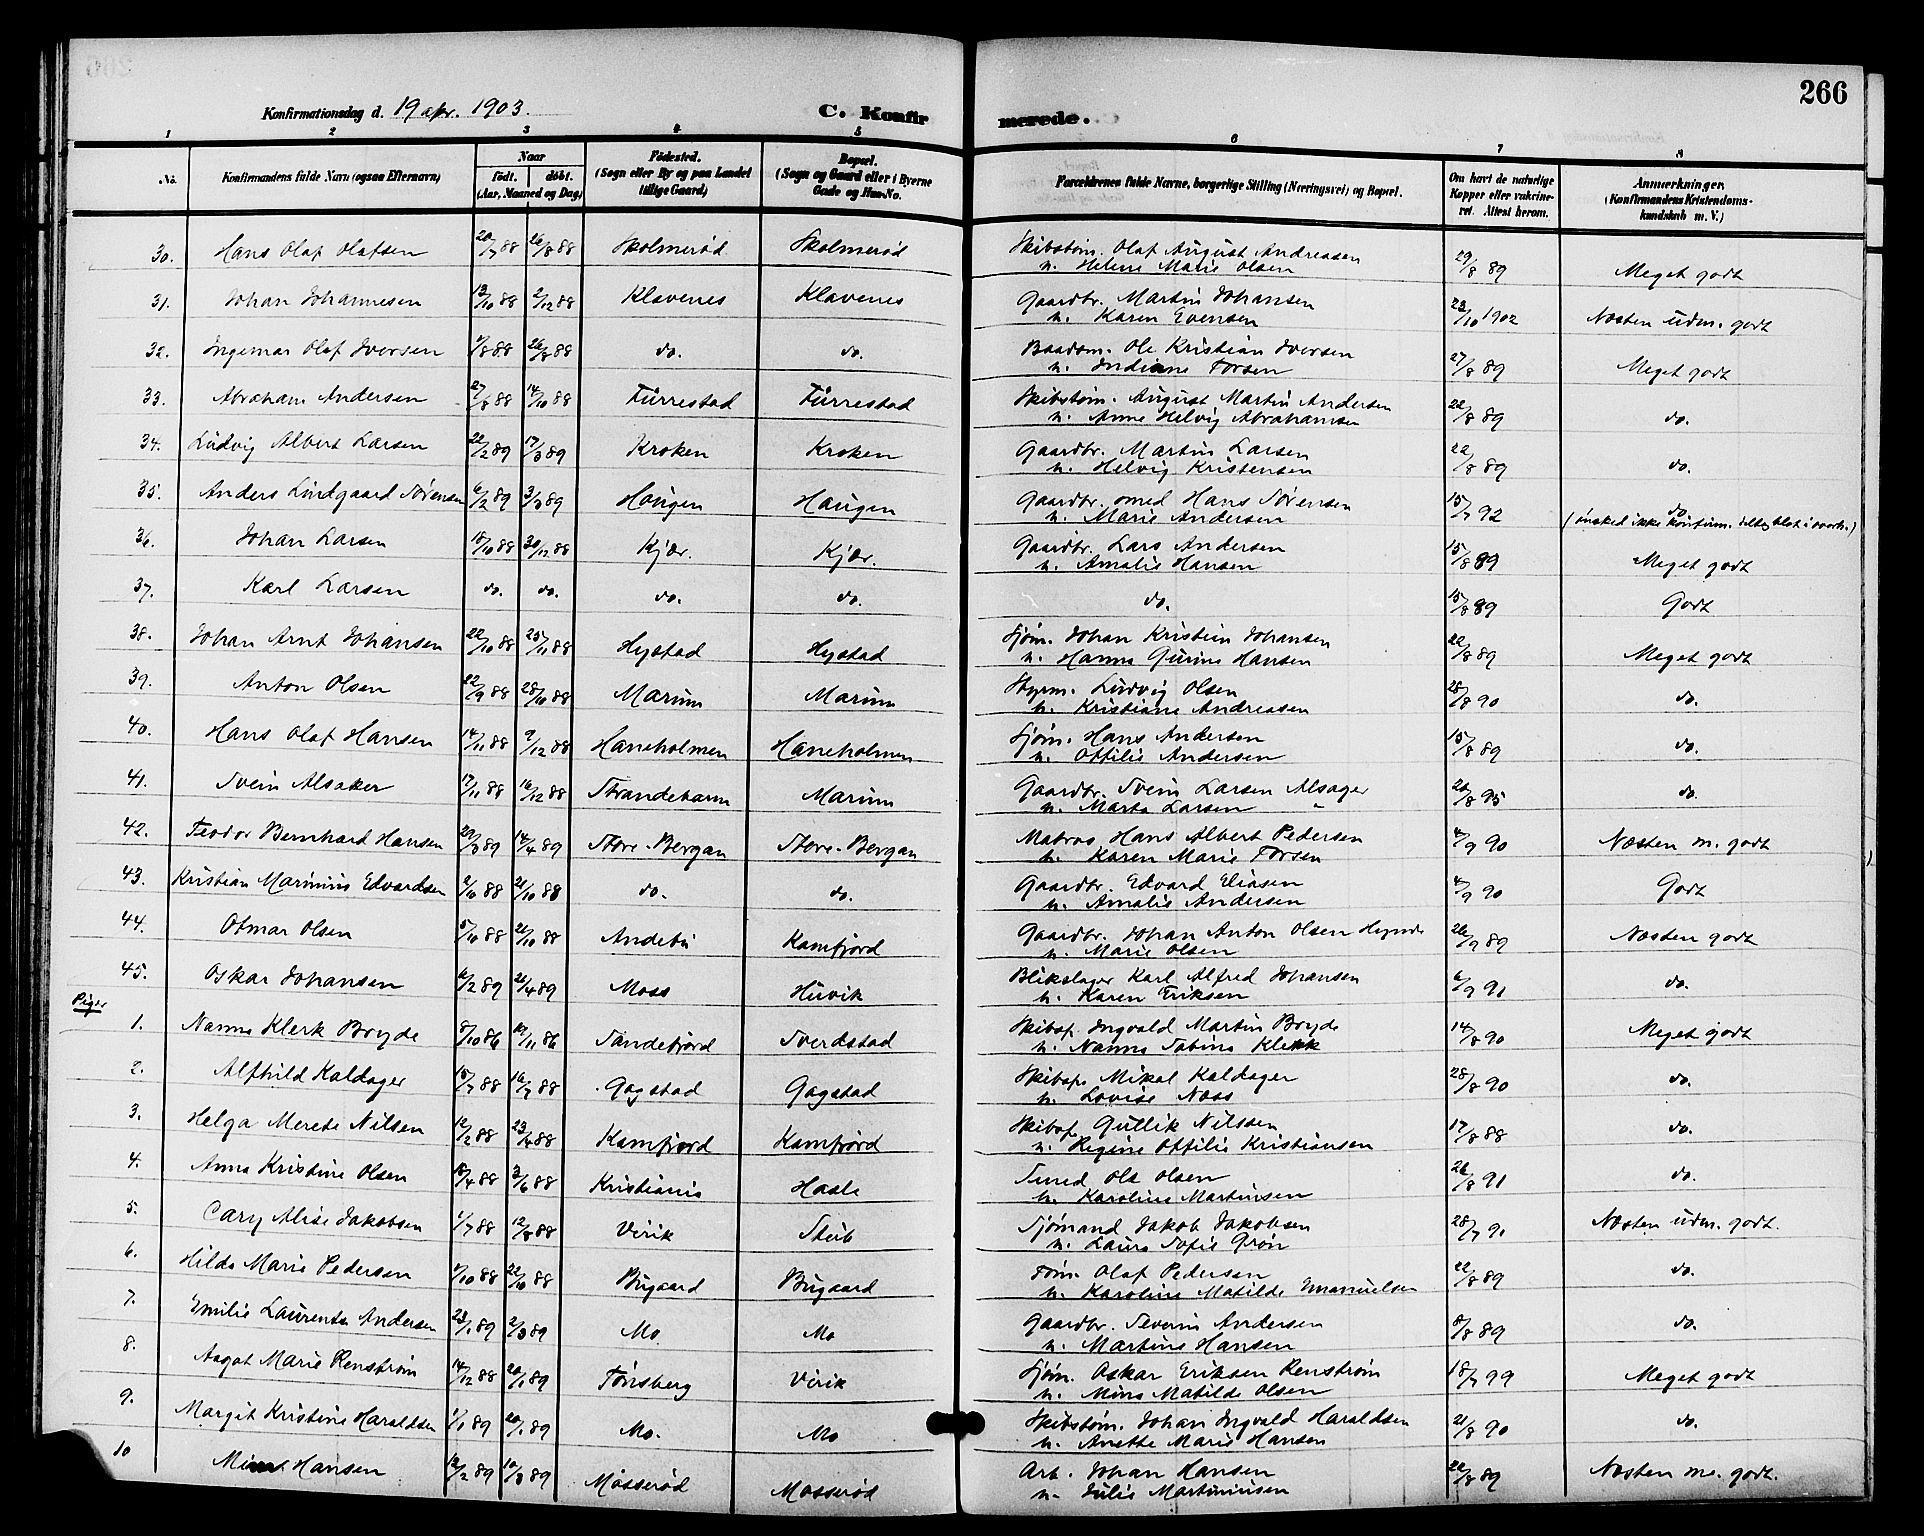 266
Konfirmationsdag d. 19 apr. 1903.
C. Konfirmerede.
1 2 3 4 5 6 7 8
No. | Konfirmandens fulde Navn (ogsaa Efternavn) | Naar født. døbt. (Aar, Maaned og Dag) | Fødested. (Sogn eller By og paa Landet tillige Gaard) | Bopæl. (Sogn og Gaard eller i Byerne Gade og Hus-No. | Forældrenes fulde Navne, borgerlige Stilling (Næringsvei) og Bopæl. | Om havt de naturlige Kopper eller vakcineret. Attest herom. | Anmærkninger. (Konfirmandens Kristendomskundskab m. V.)
30. Hans Olaf Olafsen 20/7 88 26/8 88 Skolmerød Skolmerød Skibstøm. Olaf August Andreasen 29/8 89 Meget godt
u. Helene Marie Olsen
31. Johan Johannesen 13/10 88 2/12 88 Klavenes Klavenes Gaardbr. Martin Johansen 23/10 1902 Næsten udm. godt
u. Karen Evensen
32. Ingemar Olaf Iversen 1/8 88 26/8 88 do. do. Baadsm. Ole Kristian Iversen 27/8 89 Meget godt
u. Indiane Torsen
33. Abraham Andersen 27/8 88 14/10 88 Furrestad Furrestad Skibstøm. August Martin Andersen 22/8 89 do.
u. Anne Helvig Abrahamsen
34. Ludvig Albert Larsen 22/2 89 17/3 89 Kroken Kroken Gaardbr. Martin Larsen 22/8 89 do.
u. Helvig Kristensen
35. Anders Lindgaard Sørensen 6/2 89 3/3 89 Haugen Haugen Gaardbr. smed Hans Sørensen 15/7 92 do.
u. Marie Andersen (ønsked ikke konfirm.
36. Johan Larsen 18/10 88 30/12 88 Kjær. Kjær. Gaardbr. Lars Andersen 15/8 89 Meget godt
u. Amalie Hansen
37. Karl Larsen do. do. do. do. do. 15/8 89 Godt
38. Johan Arnt Johansen 22/10 88 25/11 88 Hystad Hystad Sjøm. Johan Kristian Johansen 22/8 89 Meget godt
u. Hanna Gurine Hansen
39. Anton Olsen 22/9 88 28/10 88 Marum Marum Styrm. Ludvig Olsen 28/8 90 do.
u. Kristiane Andreasen
40. Hans Olaf Hansen 14/11 88 9/12 88 Haneholmen Haneholmen Sjøm. Hans Andersen 15/8 89 do.
u. Ottilie Andersen
41. Svein Alsaker 17/11 88 16/12 88 Strandebarm Marum Gaardbr. Svein Larsen Alsager 28/8 95 do.
u. Marta Larsen "
42. Teodor Bernhard Hansen 20/3 89 14/4 89 Store-Bergan Store-Bergan Matros Hans Albert Pedersen 4/9 90 Næsten m. godt
u. Karen Marie Torsen
43. Kristian Marinius Edvardsen 2/10 88 21/10 88 do. do. Gaardbr. Edvard Eliasen 4/9 90 Godt
u. Amalie Andersen
44. Otmar Olsen 5/10 88 21/10 88 Andebu Kamfjord Gaardbr. Johan Anton Olsen 26/9 89 Næsten godt
u. Marie Olsen
45. Oskar Johansen 6/2 89 21/4 89 Moss Huvik Blikslager Karl Alfred Johansen 6/9 91 do.
u. Karen Eriksen
Piger
1. Nanna Klerk Bryde 8/10 86 19/11 86 Sandefjord Sverdstad Skibsf. Ingvald Martin Bryde 14/8 90 Meget godt
u. Nanna Sabina Klerk
2. Alfhild Kaldager 15/7 88 16/7 88 Gogstad Gogstad Skibsf. Mikal Kaldager 28/8 90 do.
u. Lovise Næss
3. Helga Merete Nilsen 12/2 88 23/4 88 Kamfjord Kamfjord Skibsf. Gullik Nilssen 17/8 88 do.
u. Regine Ottilie Kristiansen
4. Anna Kristine Olsen 18/4 88 3/6 88 Kristiania Hasle Smed Ole Olsen 26/8 91 do.
u. Karoline Martinsen
5. Cary Alise Jakobsen 1/7 88 12/8 88 Virik Stub Sjømand Jakob Jakobsen 28/7 91 Næsten udm. godt.
u. Laura Sofie Grøn
6. Hilda Marie Pedersen 1/10 88 22/10 88 Bugaard Bugaard Tøm. Olaf Pedersen 22/8 89 do.
u. Karoline Matilde Emanuelsen
7. Emilie Laurentse Andersen 23/1 89 2/3 89 Mo Mo Gaardbr. Severin Andersen 8/8 89 do.
u. Martine Hansen
8. Aagot Marie Renstrøm 14/12 88 20/1 89 Tønsberg Virik Sjøm. Oskar Eriksen Renstrøm 18/7 99 Meget godt
u. Mina Matilde Olsen
9. Margit Kristine Haraldsen 1/1 89 20/1 89 Mo. Mo Skibstøm. Johan Ingvald Haraldsen 21/8 90 do.
u. Anette Marie Hansen
10 Hansen 12/2 89 10/3 89 Mosserød Mosserød Arb. Johan Hansen 22/8 89 Næsten m. godt.
u. Julie Martiniusen